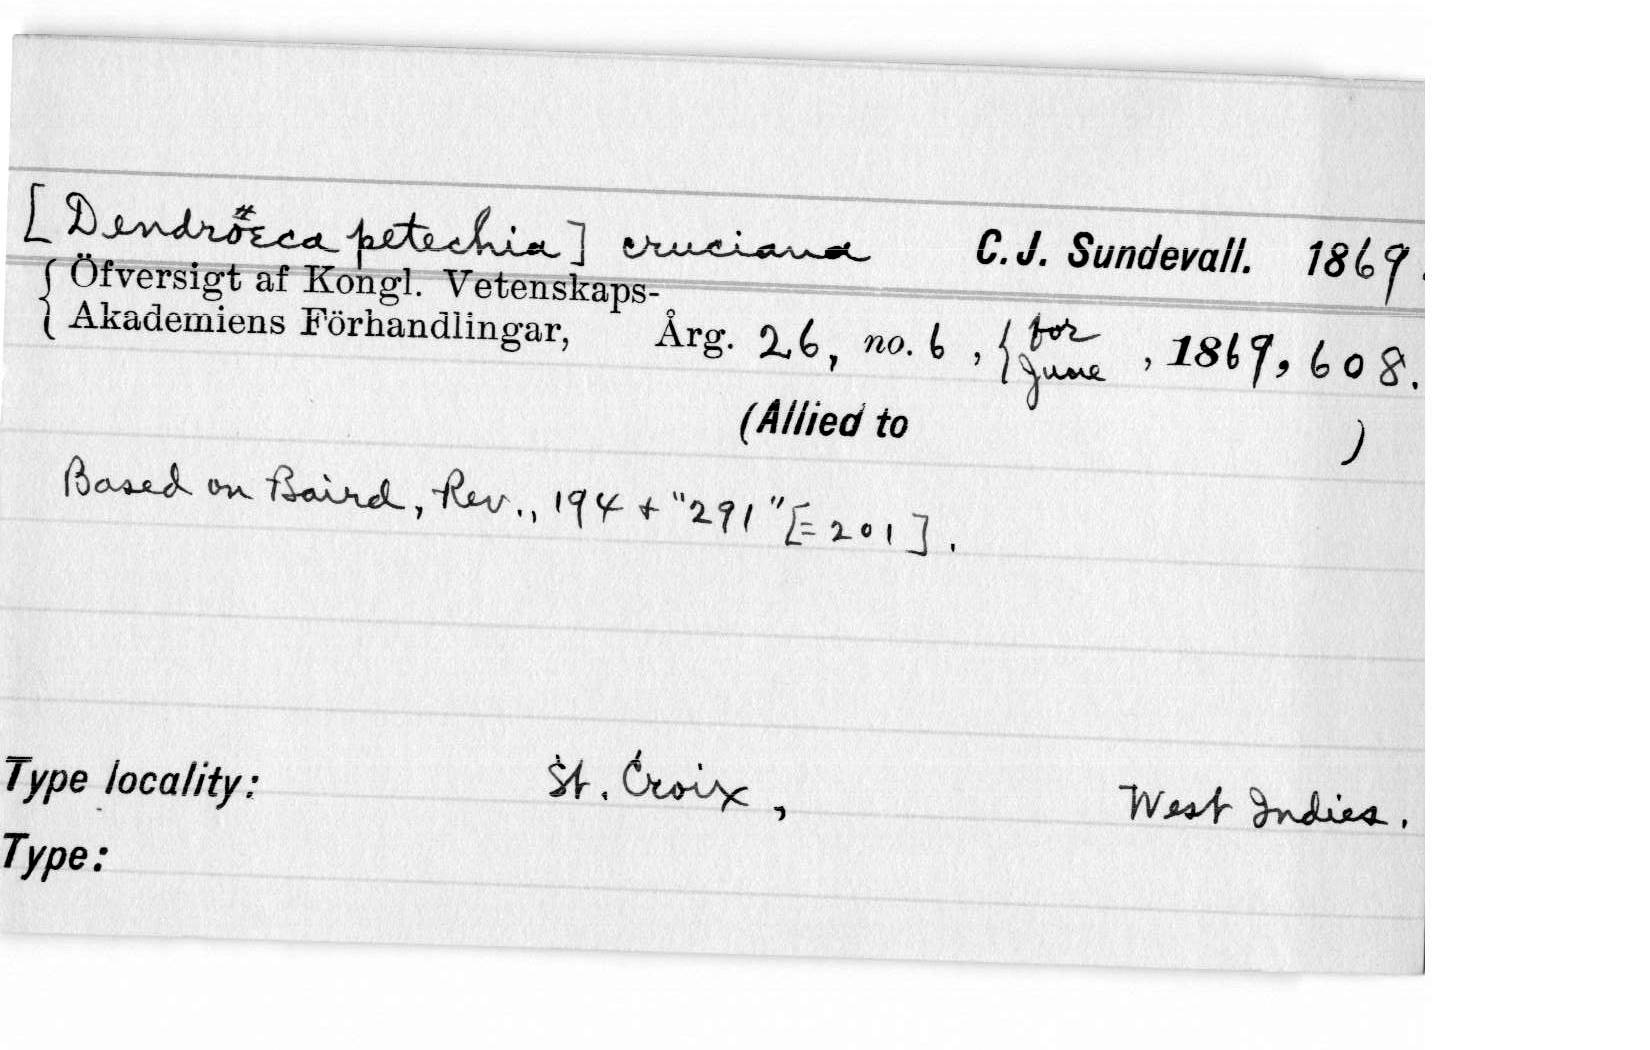 [Dendröeca petechia] cruciana C. J. Sundevall. 1869.
{ Öfversigt af Kongl. Vetenskaps-
Akademiens Förhandlingar, Årg. 26, no. 6, { for June, 1869, 608.
(Allied to )
Based on Baird, Rev., 194 + "291" [= 201].
Type locality: St. Croix, West Indies.
Type: